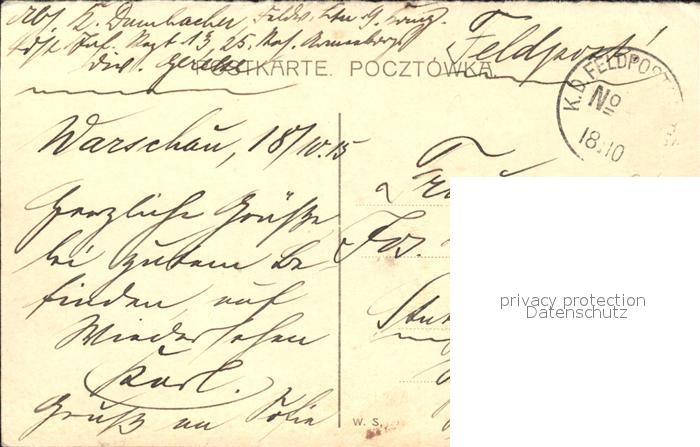 Abs. K. Dumbacher, Feldw.
Inf. Regt 13, 25. Res.
Div.
POSTKARTE. POCZTÓWKA.
Feldpost!
K.D. FELDPOST
No
18.10
Warschau, 18/10.15
Herzliche Grüße
bei gutem Be-
finden, auf
Wiedersehen
Karl.
Gruß an
W. S.
Jos.
privacy protection
Datenschutz